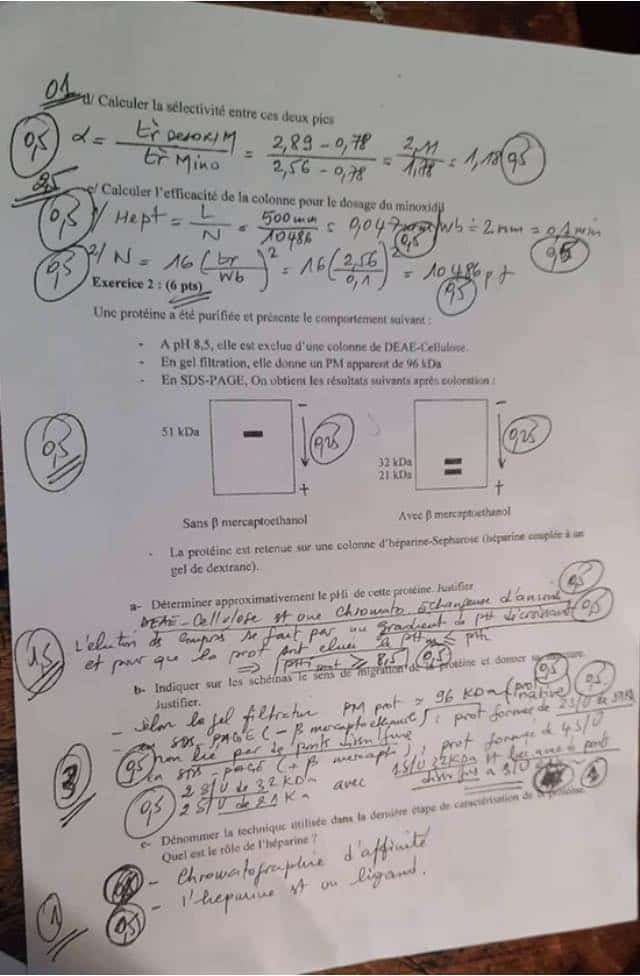 01
d/ Calculer la sélectivité entre ces deux pics
0,5 α = tr Deroxim / tr Mino = 2,89 - 0,78 / 2,56 - 0,78 = 2,11 / 1,78 = 1,18 0,5
2,5
e/ Calculer l'efficacité de la colonne pour le dosage du minoxidil
0,5 1/ Hept = L / N = 500mm / 10486 = 0,047 0,5 Wb = 2mm = 0,1 min 0,5
0,5 2/ N = 16 (tr / Wb)² = 16 (2,56 / 0,1)² = 10486 pt 0,5
Exercice 2 : (6 pts)
Une protéine a été purifiée et présente le comportement suivant :
- A pH 8,5, elle est exclue d'une colonne de DEAE-Cellulose.
- En gel filtration, elle donne un PM apparent de 96 kDa
- En SDS-PAGE, On obtient les résultats suivants après coloration :
0,5
51 kDa - 0,25 +
32 kDa
21 kDa - 0,25 +
Sans β mercaptoethanol
Avec β mercaptoethanol
- La protéine est retenue sur une colonne d'héparine-Sepharose (héparine couplée à un
gel de dextrane).
a- Déterminer approximativement le pHi de cette protéine. Justifier 0,5
DEAE-Cellulose est une chromato échangeuse d'anions
1,5 L'élution se fait par un gradient de pH décroissant 0,5
et pour que la prot soit éluée pH ≤ pHi
⇒ pHi prot ≥ 8,5 0,5
b- Indiquer sur les schémas le sens de migration de la protéine et donner sa
Justifier.
- selon la gel filtration PM prot = 96 KDa (prot native) 0,5
- en SDS-PAGE (- β mercaptoethanol) : prot formée de 2 S/U de
0,5 non lié par de ponts disulfure
3 en SDS-PAGE (+ β mercapto) : prot formée de 4 S/U
2 S/U de 32 KDa
0,5 2 S/U de 21 Ka avec 1 S/U 32KDa
c- Dénommer la technique utilisée dans la dernière étape de caractérisation de la protéine.
Quel est le rôle de l'héparine ?
- Chromatographie d'affinité
0,5 - l'héparine est un ligand.
1